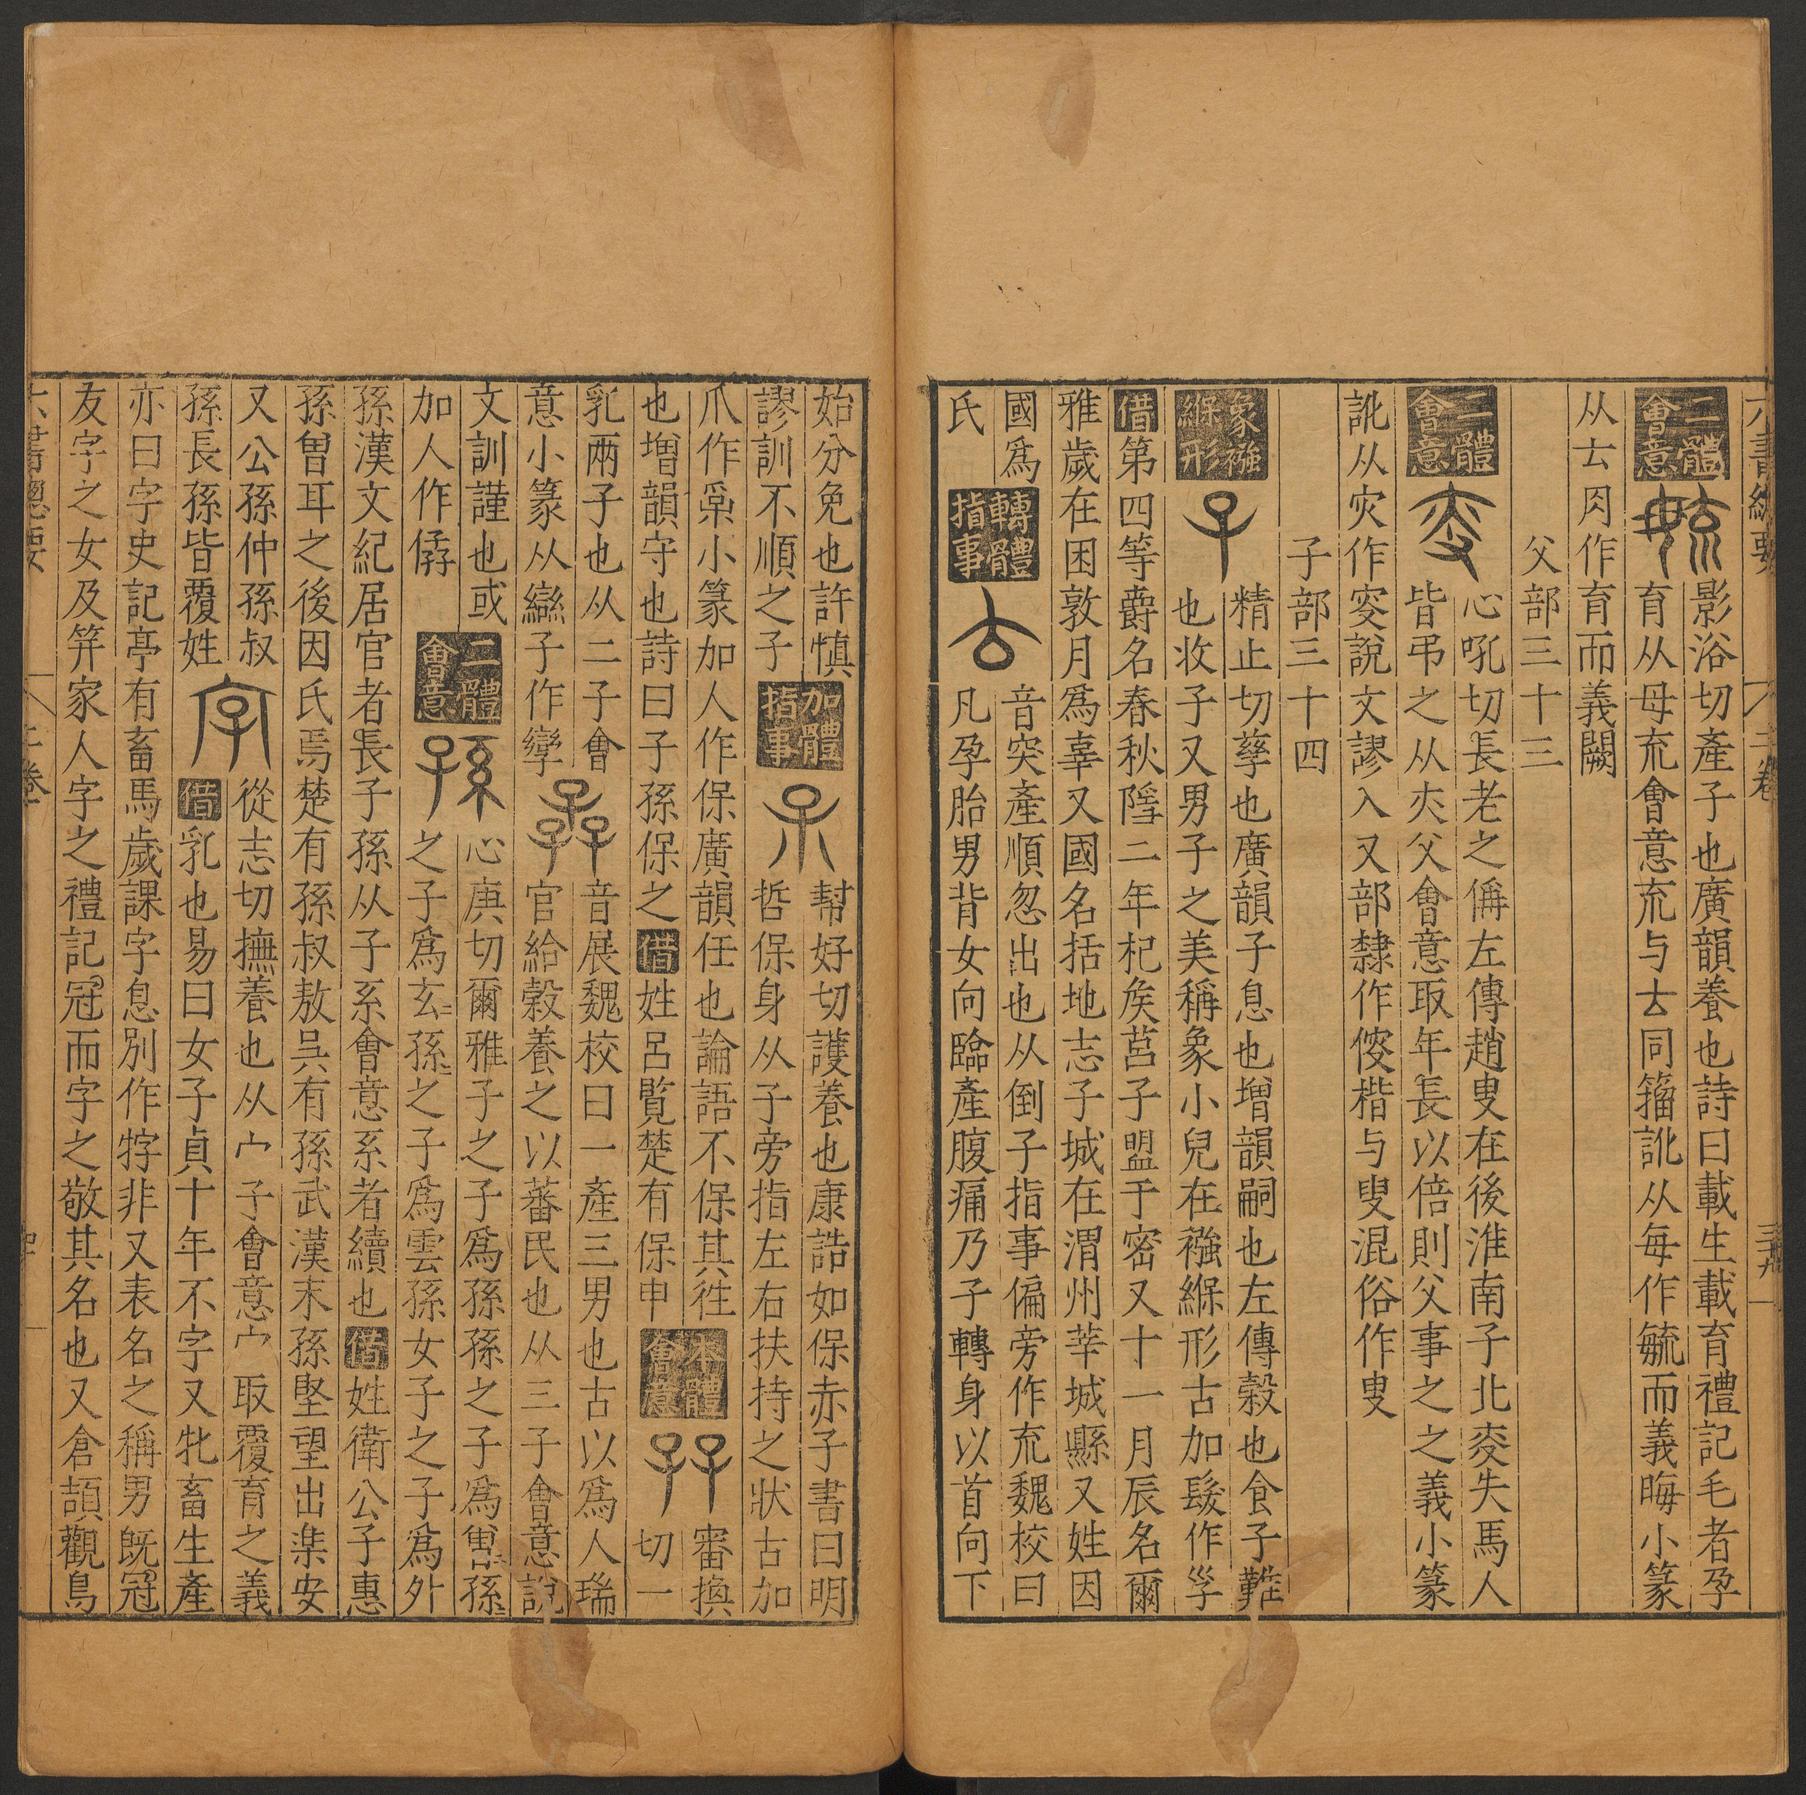 六書總要 二卷 三十九
二體會意
毓
影浴切產子也廣韻養也詩曰載生載育禮記毛者孕
育从母㐬會意㐬与𠫓同籀訛从每作毓而義晦小篆
从𠫓肉作育而義闕
父部三十三
二體會意
心吼切長老之偁左傳趙叟在後淮南子北叜失馬人
皆弔之从夾父會意取年長以倍則父事之之義小篆
訛从灾作叜說文謬入又部隸作傁楷与叟混俗作叟
子部三十四
象襁緥形
子
精止切孳也廣韻子息也增韻嗣也左傳穀也食子難
也收子又男子之美稱象小兒在襁緥形古加髮作㜽
借第四等爵名春秋隱二年杞矦莒子盟于密又十一月辰名爾
雅歲在困敦月爲辜又國名括地志子城在渭州莘城縣又姓因
國爲
氏
轉體指事
𠫓
音突產順忽出也从倒子指事偏旁作㐬魏校曰
凡孕胎男背女向臨產腹痛乃子轉身以首向下
始分免也許慎
謬訓不順之子
加體指事
幫好切護養也康誥如保赤子書曰明
哲保身从子旁指左右扶持之狀古加
爪作㝒小篆加人作保廣韻任也論語不保其徃
也增韻守也詩曰子孫保之借姓呂覽楚有保申
本體會意
審換
切一
乳兩子也从二子會
意小篆从䜌子作孿
孨
音展魏校曰一產三男也古以爲人瑞
官給穀養之以蕃民也从三子會意說
文訓謹也或
加人作僝
二體會意
孫
心庚切爾雅子之子爲孫孫之子爲曾孫
之子爲玄孫孫之子爲雲孫女子之子爲外
孫漢文紀居官者長子孫从子系會意系者續也借姓衛公子惠
孫曽耳之後因氏焉楚有孫叔敖吳有孫武漢末孫堅望出樂安
又公孫仲孫叔
孫長孫皆覆姓
字
從志切撫養也从宀子會意宀取覆育之義
借乳也易曰女子貞十年不字又牝畜生產
亦曰字史記亭有畜馬歲課字息別作牸非又表名之稱男既冠
友字之女及笄家人字之禮記冠而字之敬其名也又倉頡觀鳥
六書總要 二卷 四十